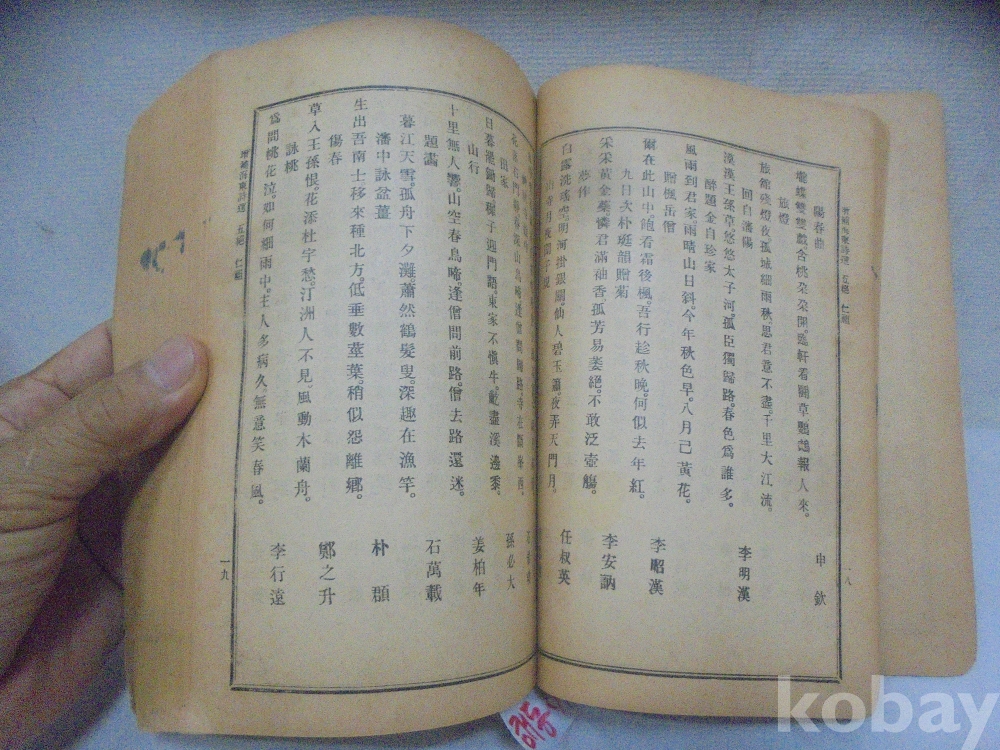 增補海東詩選 五絕 仁祖
陽春曲 申欽
雙雙戲含桃朶朶開。臨軒看鬪草鸚鵡報人來。
旅燈
旅館殘燈夜。孤城細雨秋。思君意不盡。千里大江流。
回自瀋陽 李明漢
漠漠王孫草。悠悠太子河。孤臣獨歸路。春色爲誰多。
醉題金自珍家
風雨到君家。雨晴山日斜。今年秋色早。八月已黃花。
贈楓岳僧 李昭漢
爾在此山中。飽看霜後楓。吾行趁秋晚。何似去年紅。
九日次朴珽韻贈菊 李安訥
采采黃金蘂。憐君滿袖香。孤芳易萎絕。不敢泛壺觴。
任叔英
白露洗瑤空。明河掛銀闕。仙人碧玉簫。夜弄天門月。
一八
田家 孫必大
日暮罷鋤歸。稚子迎門語。東家不愼牛。齕盡溪邊黍。
山行 姜柏年
十里無人響。山空春鳥啼。逢僧問前路。僧去路還迷。
題 石萬載
暮江天雪。孤舟下夕灘。蕭然鶴髮叟。深趣在漁竿。
瀋中詠盆薑 朴
生出吾南土。移來種北方。低垂數莖葉。稍似怨離鄕。
傷春 鄭之升
草入王孫恨。花添杜宇愁。汀洲人不見。風動木蘭舟。
詠桃 李行遠
爲問桃花泣。如何細雨中。主人多病久。無意笑春風。
增補海東詩選 五絕 仁祖
一九
kobay